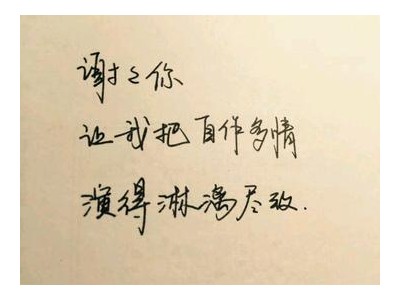 谢谢你
让我把自作多情
演得淋漓尽致.